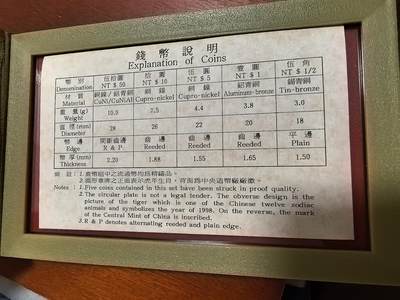 錢幣說明
Explanation of Coins
幣別 伍拾圓 拾圓 伍圓 壹圓 伍角
Denomination NT$50 NT$10 NT$5 NT$1 NT$1/2
材質 銅鎳/鋁青銅 銅鎳 銅鎳 鋁青銅 錫青銅
Material CuNi/CuNiAl Cupro-nickel Cupro-nickel Aluminum-bronze Tin-bronze
重量(g) 7.5 4.4 3.8 3.0
Weight
直徑(mm) 28 26 22 20 18
Diameter
幣邊 間斷齒邊 齒邊 齒邊 齒邊 平邊
Edge R & P Reeded Reeded Reeded Plain
幣厚(mm) 2.20 1.88 1.55 1.65 1.50
Thickness
附註:1.套幣組中之流通幣均為精鑄品。
2.圓形章牌之正面表示虎年生肖,背面為中央造幣廠廠徽。
Notes : 1.Five coins contained in this set have been struck in proof quality.
2.The circular plate is not a legal tender. The obverse design is the
picture of the tiger which is one of the Chinese twelve zodiac
animals and symbolizes the year of 1998. On the reverse, the mark
of the Central Mint of China is inscribed.
3.R & P denotes alternating reeded and plain edge.